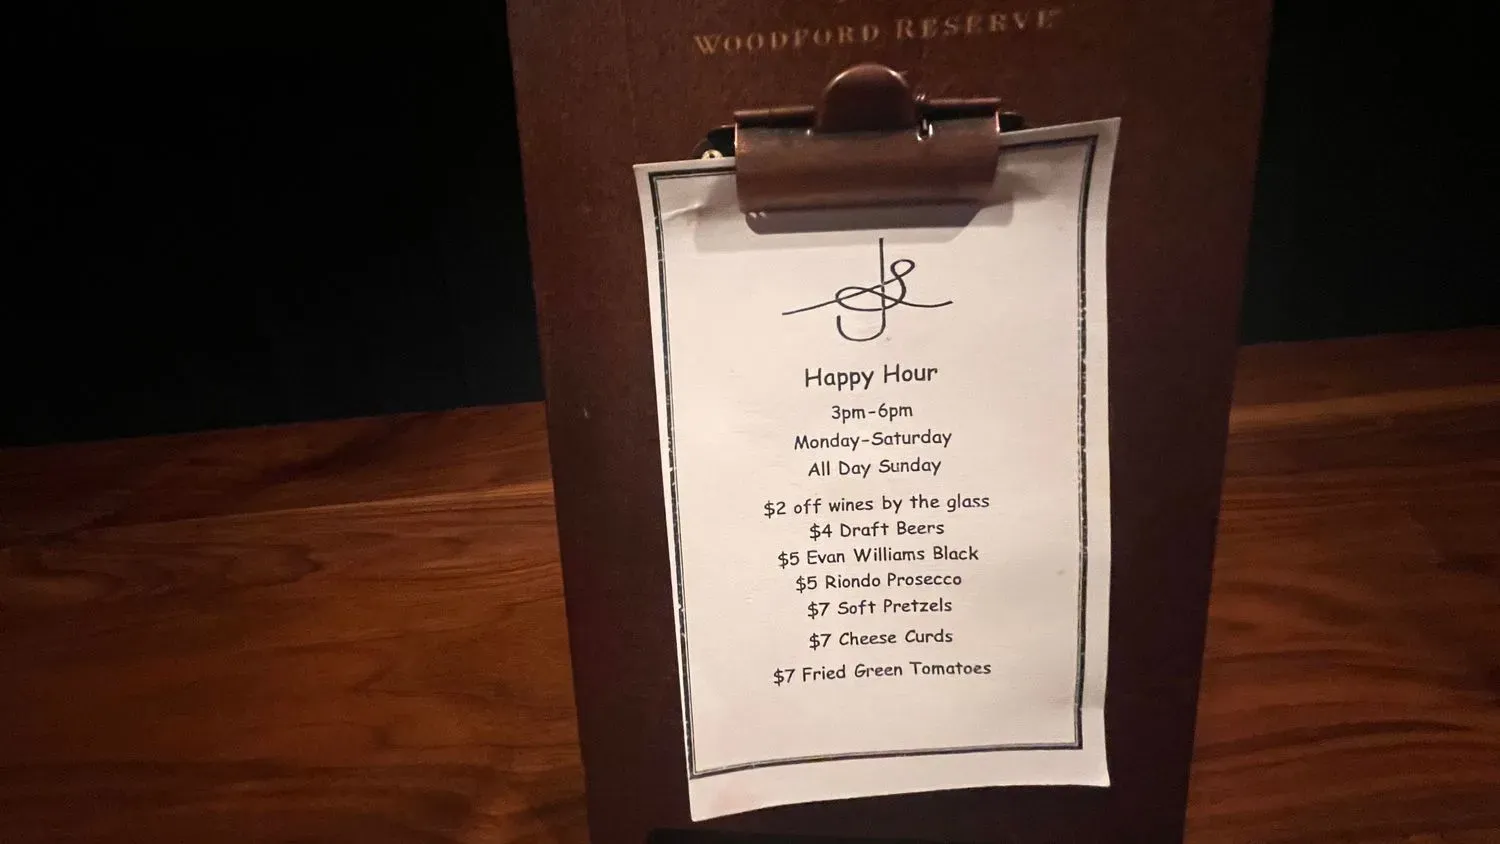 WOODFORD RESERVE
Happy Hour
3pm-6pm
Monday-Saturday
All Day Sunday
$2 off wines by the glass
$4 Draft Beers
$5 Evan Williams Black
$5 Riondo Prosecco
$7 Soft Pretzels
$7 Cheese Curds
$7 Fried Green Tomatoes